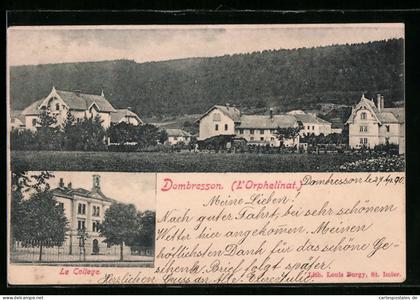 Dombresson. (L'Orphelinat.)
Dombresson le 27
Meine Lieben!
Nach guter Fahrt, bei sehr schönem
Wetter hier angekommen. Meinen
höflichsten Dank für das schöne Ge-
schenk. Brief folgt später.
Herzlichen Gruss an Alle.
Le Collège
Lith. Louis Burgy, St. Imier.